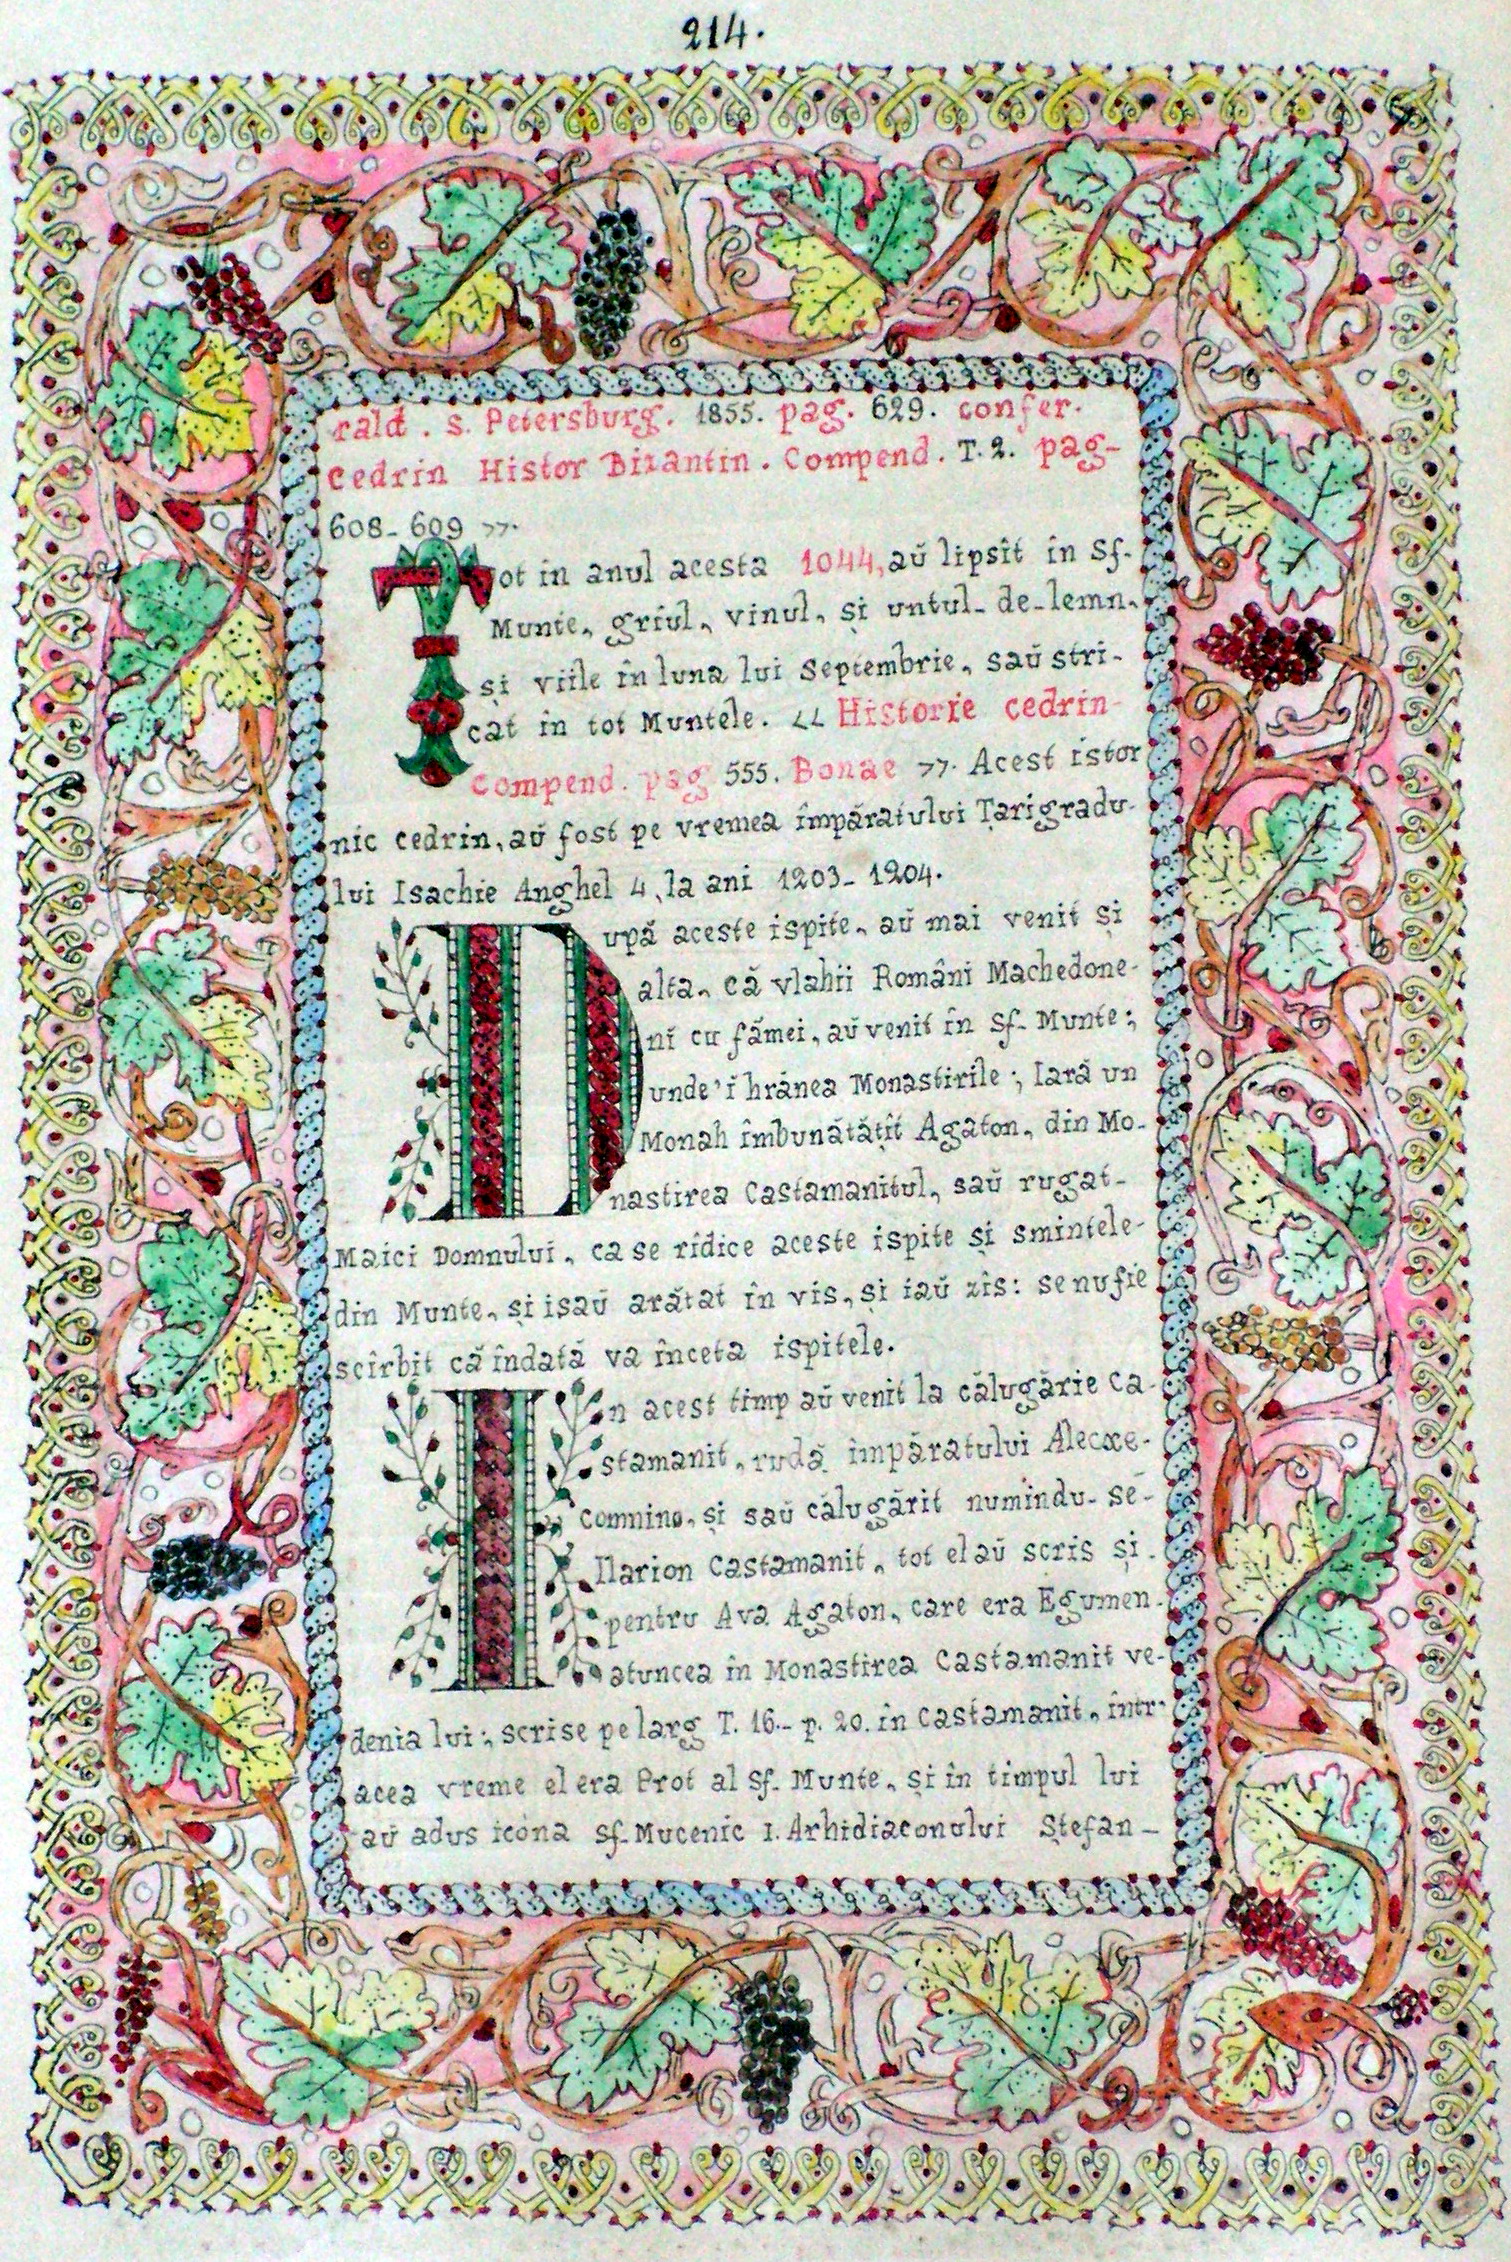 214.
rald. s. Petersburg. 1855. pag. 629. confer.
cedrin Histor Bizantin. Compend. T. 2. pag-
608-609 >>.
Tot in anul acesta 1044, aŭ lipsît în Sf-
Munte, grîul, vinul, și untul-de-lemn,
și viile în luna lui Septembrie, saŭ stri-
cat în tot Muntele. << Historie cedrin
compend. pag 555. Bonae >>. Acest istor
nic cedrin, aŭ fost pe vremea împăratului Țarigradu-
lui Isachie Anghel 4, la ani 1203-1204.
După aceste ispite, aŭ mai venit și
alta, că vlahii Români Machedone-
nĭ cu fămei, aŭ venit în Sf- Munte;
unde'ĭ hrănea Monastirile; Iară un
Monah îmbunătățit Agaton, din Mo-
nastirea Castamanitul, saŭ rugat-
Maici Domnului, ca se rîdice aceste ispite și smintele-
din Munte, și isaŭ arătat în vis, și iaŭ zîs: se nu fie
scîrbit că îndată va înceta ispitele.
In acest timp aŭ venit la călugărie Ca-
stamanit, rudă împăratului Alecxe-
Comnino, și saŭ călugărit numindu-sé-
Ilarion Castamanit, tot el aŭ scris și-
pentru Ava Agaton, care era Egumen-
atuncea în Monastirea Castamanit ve-
denia lui; scrise pe larg T. 16.- p. 20. în Castamanit, într'
acea vreme el era Prot al Sf- Munte, și în timpul lui
aŭ adus icóna Sf- Mucenic I. Arhidiaconului Ștefan-